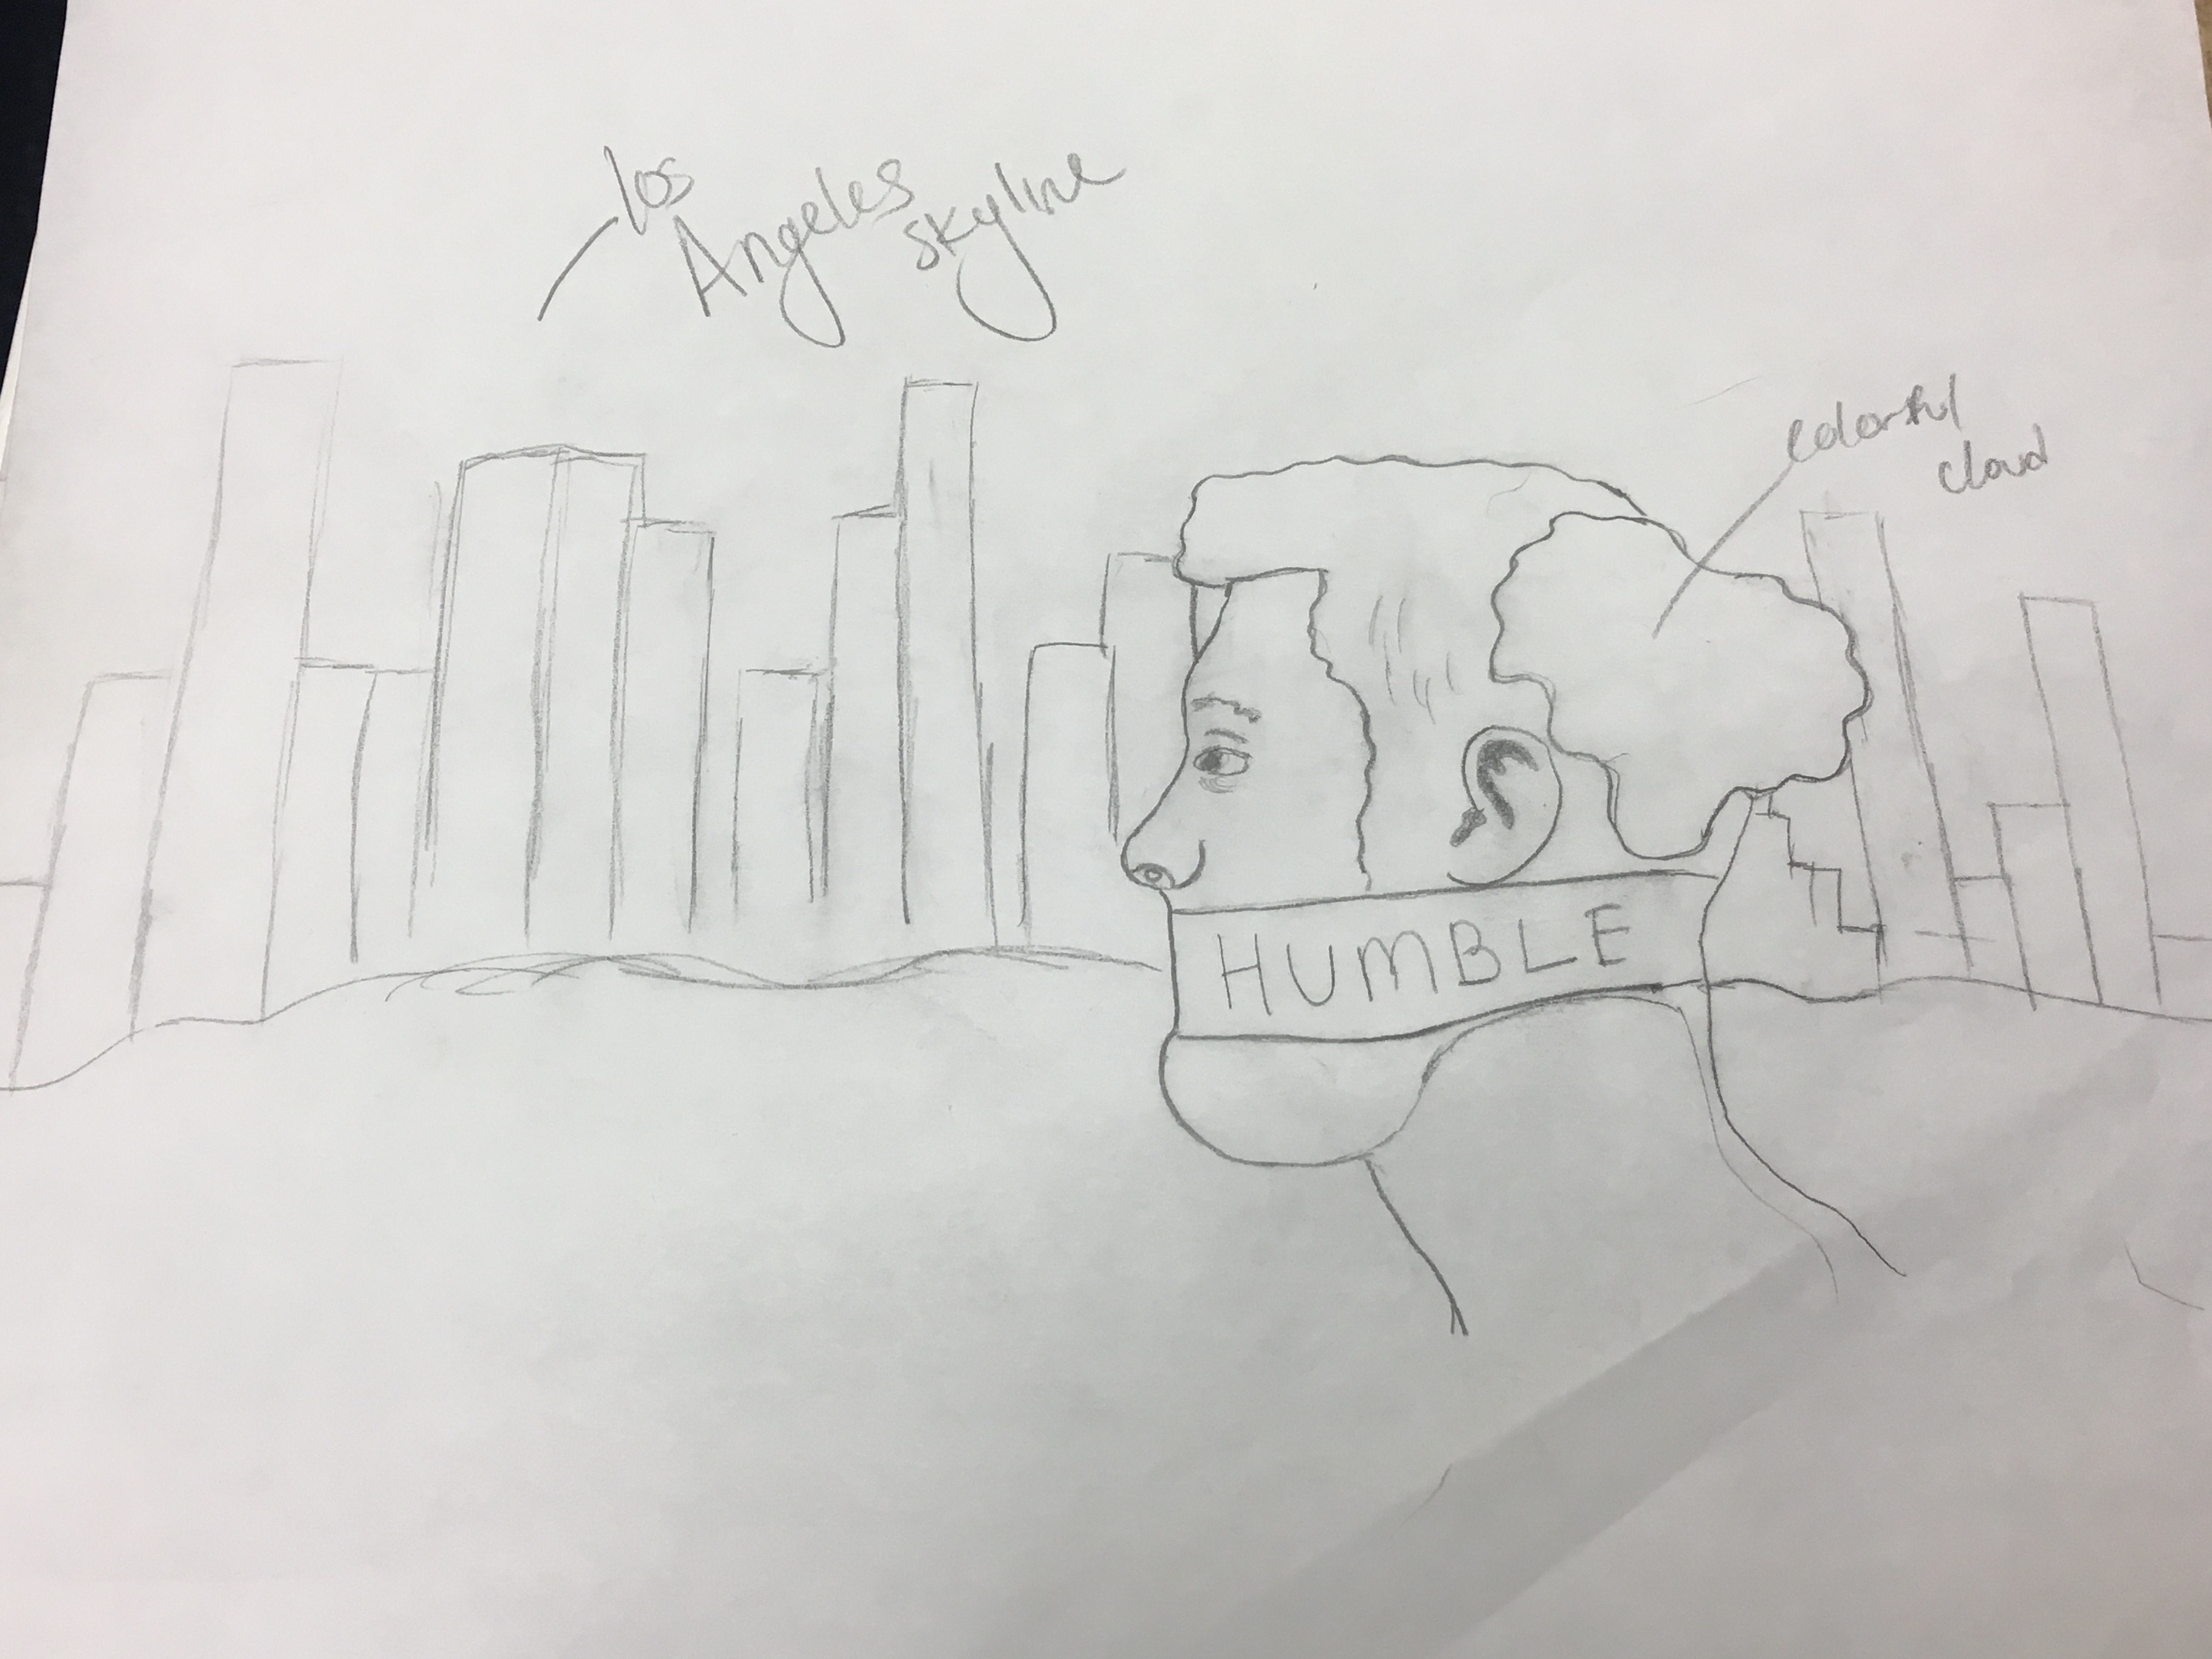 los
Angeles
skyline
colorful
cloud
HUMBLE